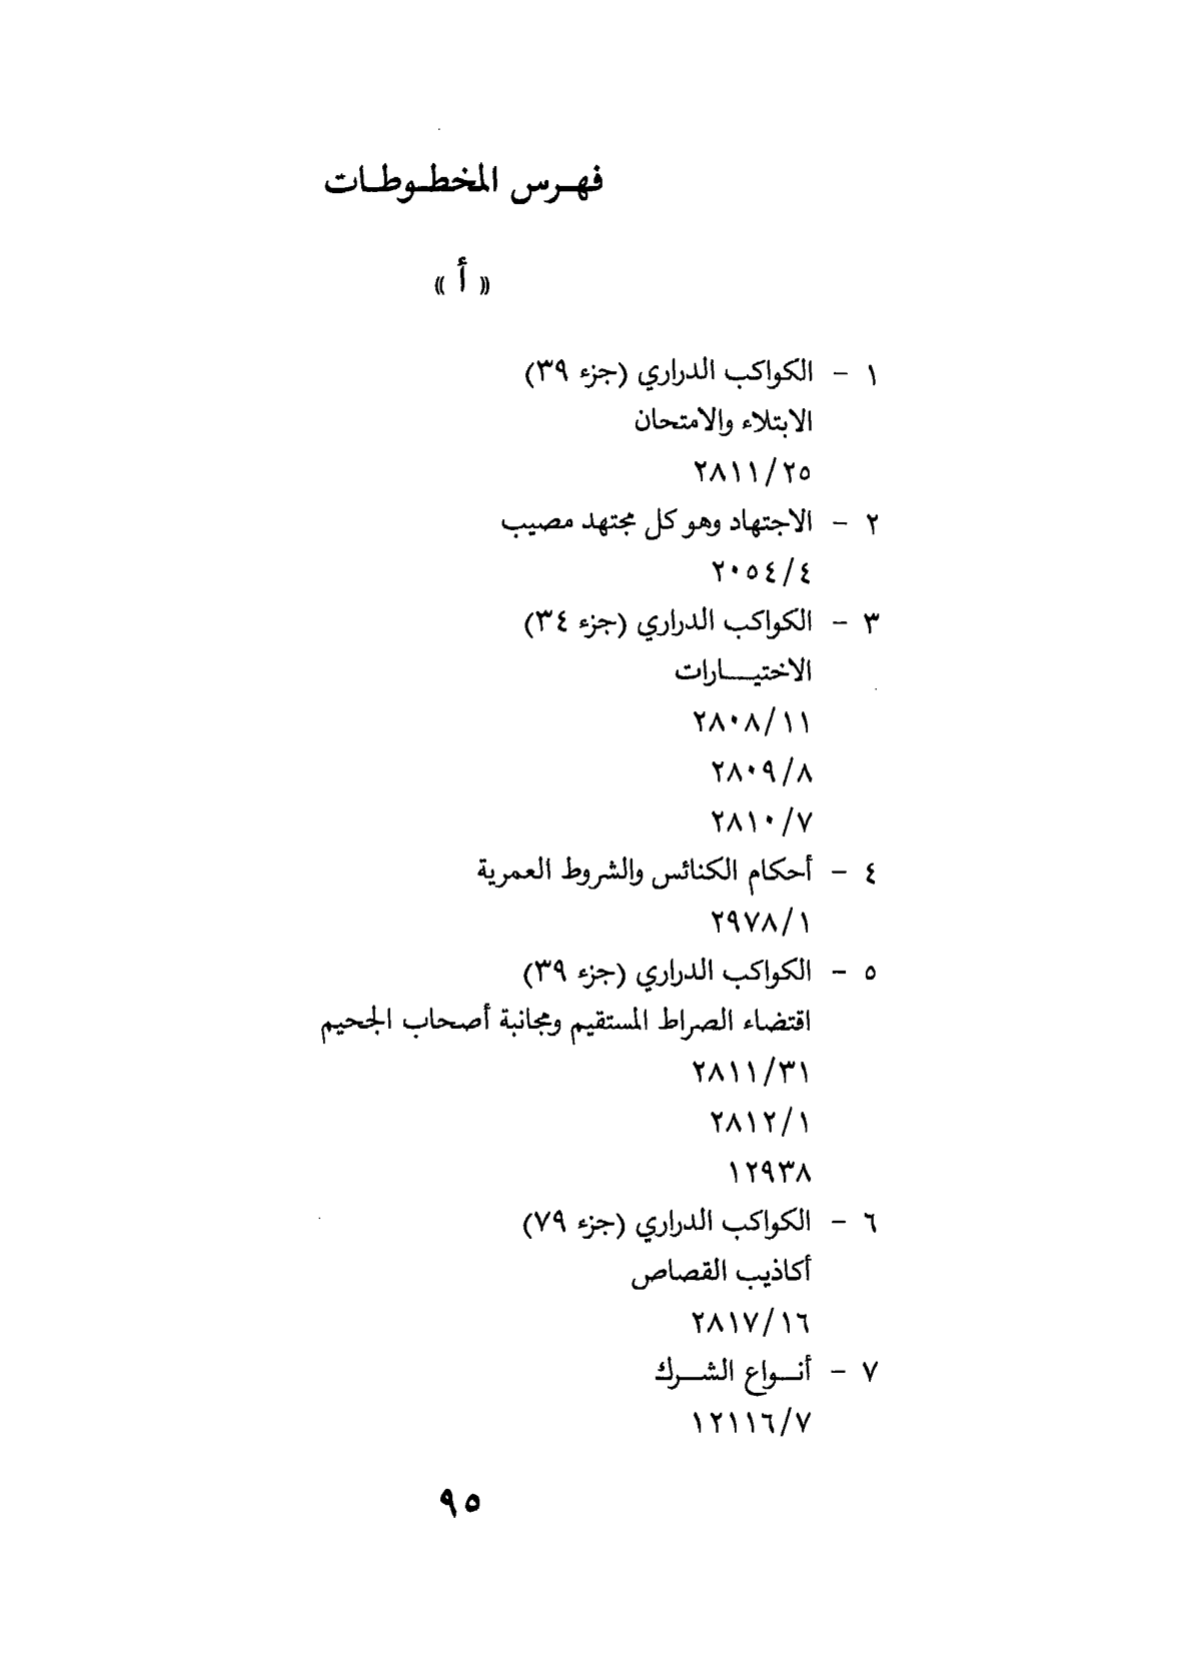 فهـرس المخطـوطـات
« أ »
١ - الكواكب الدراري (جزء ٣٩)
الابتلاء والامتحان
٢٨١١/٢٥
٢ - الاجتهاد وهو كل مجتهد مصيب
٢٠٥٤/٤
٣ - الكواكب الدراري (جزء ٣٤)
الاختيـــارات
٢٨٠٨/١١
٢٨٠٩/٨
٢٨١٠/٧
٤ - أحكام الكنائس والشروط العمرية
٢٩٧٨/١
٥ - الكواكب الدراري (جزء ٣٩)
اقتضاء الصراط المستقيم ومجانبة أصحاب الجحيم
٢٨١١/٣١
٢٨١٢/١
١٢٩٣٨
٦ - الكواكب الدراري (جزء ٧٩)
أكاذيب القصاص
٢٨١٧/١٦
٧ - أنــواع الشــرك
١٢١١٦/٧
٩٥